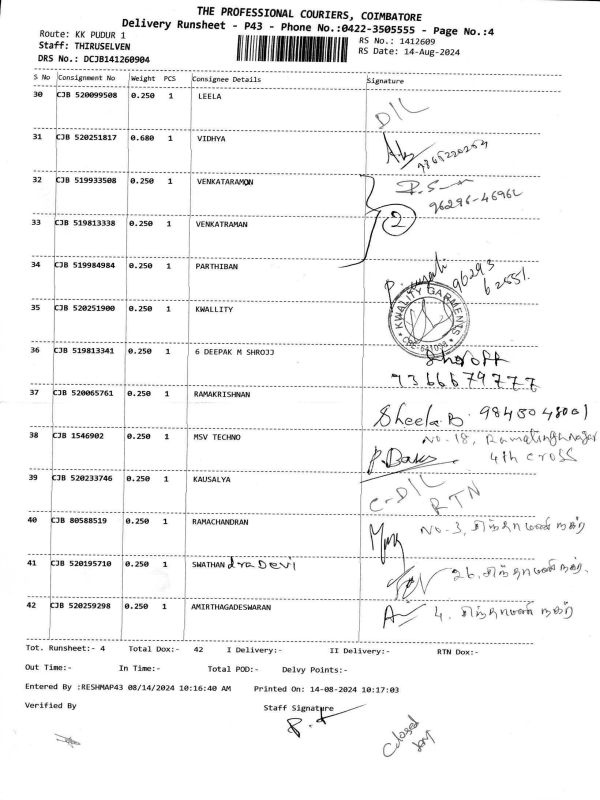 THE PROFESSIONAL COURIERS, COIMBATORE
Delivery Runsheet - P43 - Phone No.:0422-3505555 - Page No.:4
Route: KK PUDUR 1
RS No.: 1412609
Staff: THIRUSELVEN
RS Date: 14-Aug-2024
DRS No.: DCJB141260904
S No Consignment No Weight PCS Consignee Details Signature
30 CJB 520099508 0.250 1 LEELA D/L
31 CJB 520251817 0.680 1 VIDHYA
32 CJB 519933508 0.250 1 VENKATARAMON
96296-46962
33 CJB 519813338 0.250 1 VENKATRAMAN 2
34 CJB 519984984 0.250 1 PARTHIBAN
96293
62551
35 CJB 520251900 0.250 1 KWALLITY KWALITY GARMENTS
36 CJB 519813341 0.250 1 6 DEEPAK M SHROJJ Shroff
9366679777
37 CJB 520065761 0.250 1 RAMAKRISHNAN Sheela B. 9845048001
38 CJB 1546902 0.250 1 MSV TECHNO No. 18, Ramalinganagar
4th cross
39 CJB 520233746 0.250 1 KAUSALYA C-D/L
RTN
40 CJB 80588519 0.250 1 RAMACHANDRAN No. 3, சிந்தாமணி நகர்
41 CJB 520195710 0.250 1 SWATHAN dra Devi 26, சிந்தாமணி நகர்.
42 CJB 520259298 0.250 1 AMIRTHAGADESWARAN 4. சிந்தாமணி நகர்
Tot. Runsheet:- 4 Total Dox:- 42 I Delivery:- II Delivery:- RTN Dox:-
Out Time:- In Time:- Total POD:- Delvy Points:-
Entered By :RESHMAP43 08/14/2024 10:16:40 AM Printed On: 14-08-2024 10:17:03
Verified By Staff Signature
Closed